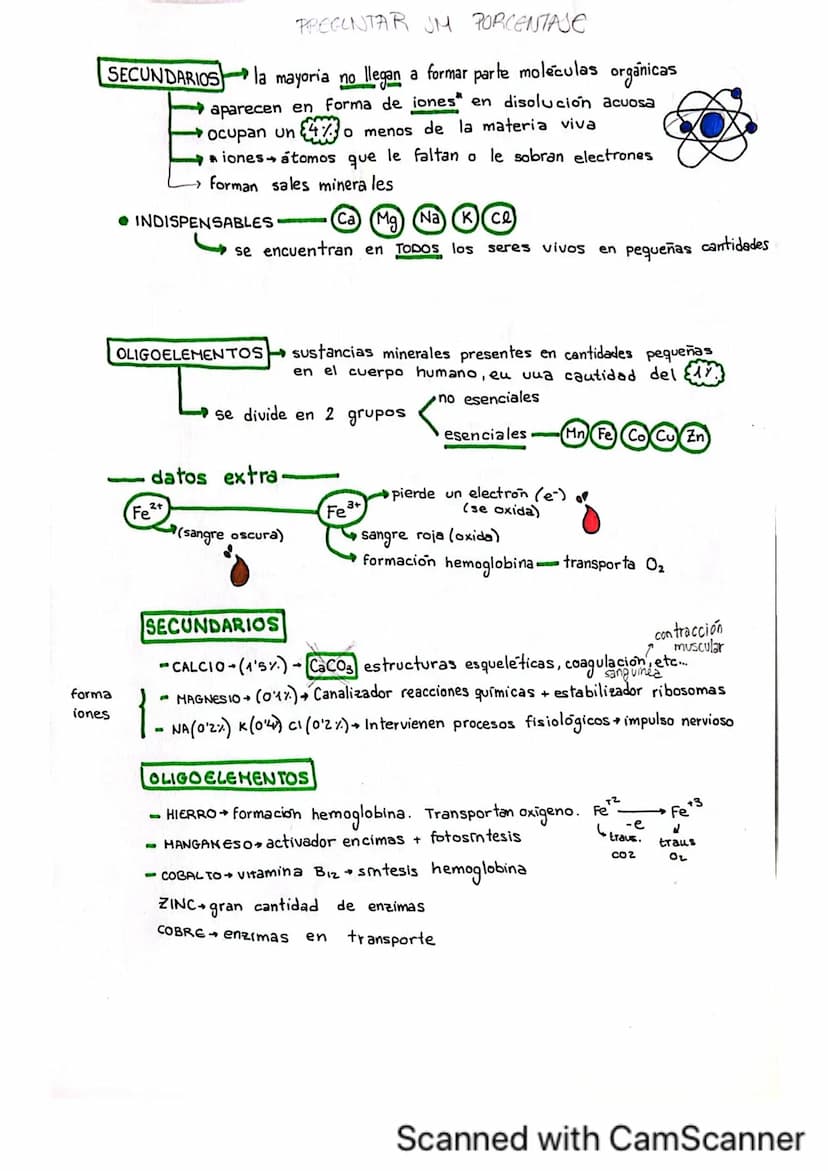 PREGUNTAR JM PORCENTAJE
SECUNDARIOS → la mayoría no llegan a formar parte moléculas orgánicas
→ aparecen en forma de iones* en disolución acuosa
→ ocupan un 4% o menos de la materia viva
→ * iones → átomos que le faltan o le sobran electrones
→ forman sales minerales
• INDISPENSABLES — Ca Mg Na K Cl
→ se encuentran en TODOS los seres vivos en pequeñas cantidades
OLIGOELEMENTOS → sustancias minerales presentes en cantidades pequeñas
en el cuerpo humano, en una cantidad del 1%.
→ se divide en 2 grupos
no esenciales
esenciales — Mn Fe Co Cu Zn
— datos extra —
Fe²⁺ — Fe³⁺ → pierde un electrón (e⁻)
(se oxida)
→ (sangre oscura)
→ sangre roja (oxido)
→ formación hemoglobina — transporta O₂
SECUNDARIOS
contracción
muscular
- CALCIO → (1'5%) → CaCO₃ estructuras esqueléticas, coagulación, etc...
sanguínea
forma
iones
- MAGNESIO → (0'1%) → Canalizador reacciones químicas + estabilizador ribosomas
- NA (0'2%) K (0'4) Cl (0'2%) → Intervienen procesos fisiológicos → impulso nervioso
OLIGOELEMENTOS
- HIERRO → formación hemoglobina. Transportan oxígeno. Fe⁺² → Fe⁺³
-e
- MANGANESO → activador encimas + fotosíntesis
↳ trans. trans
CO2 O₂
- COBALTO → vitamina B12 → síntesis hemoglobina
ZINC → gran cantidad de enzimas
COBRE → enzimas en transporte
Scanned with CamScanner